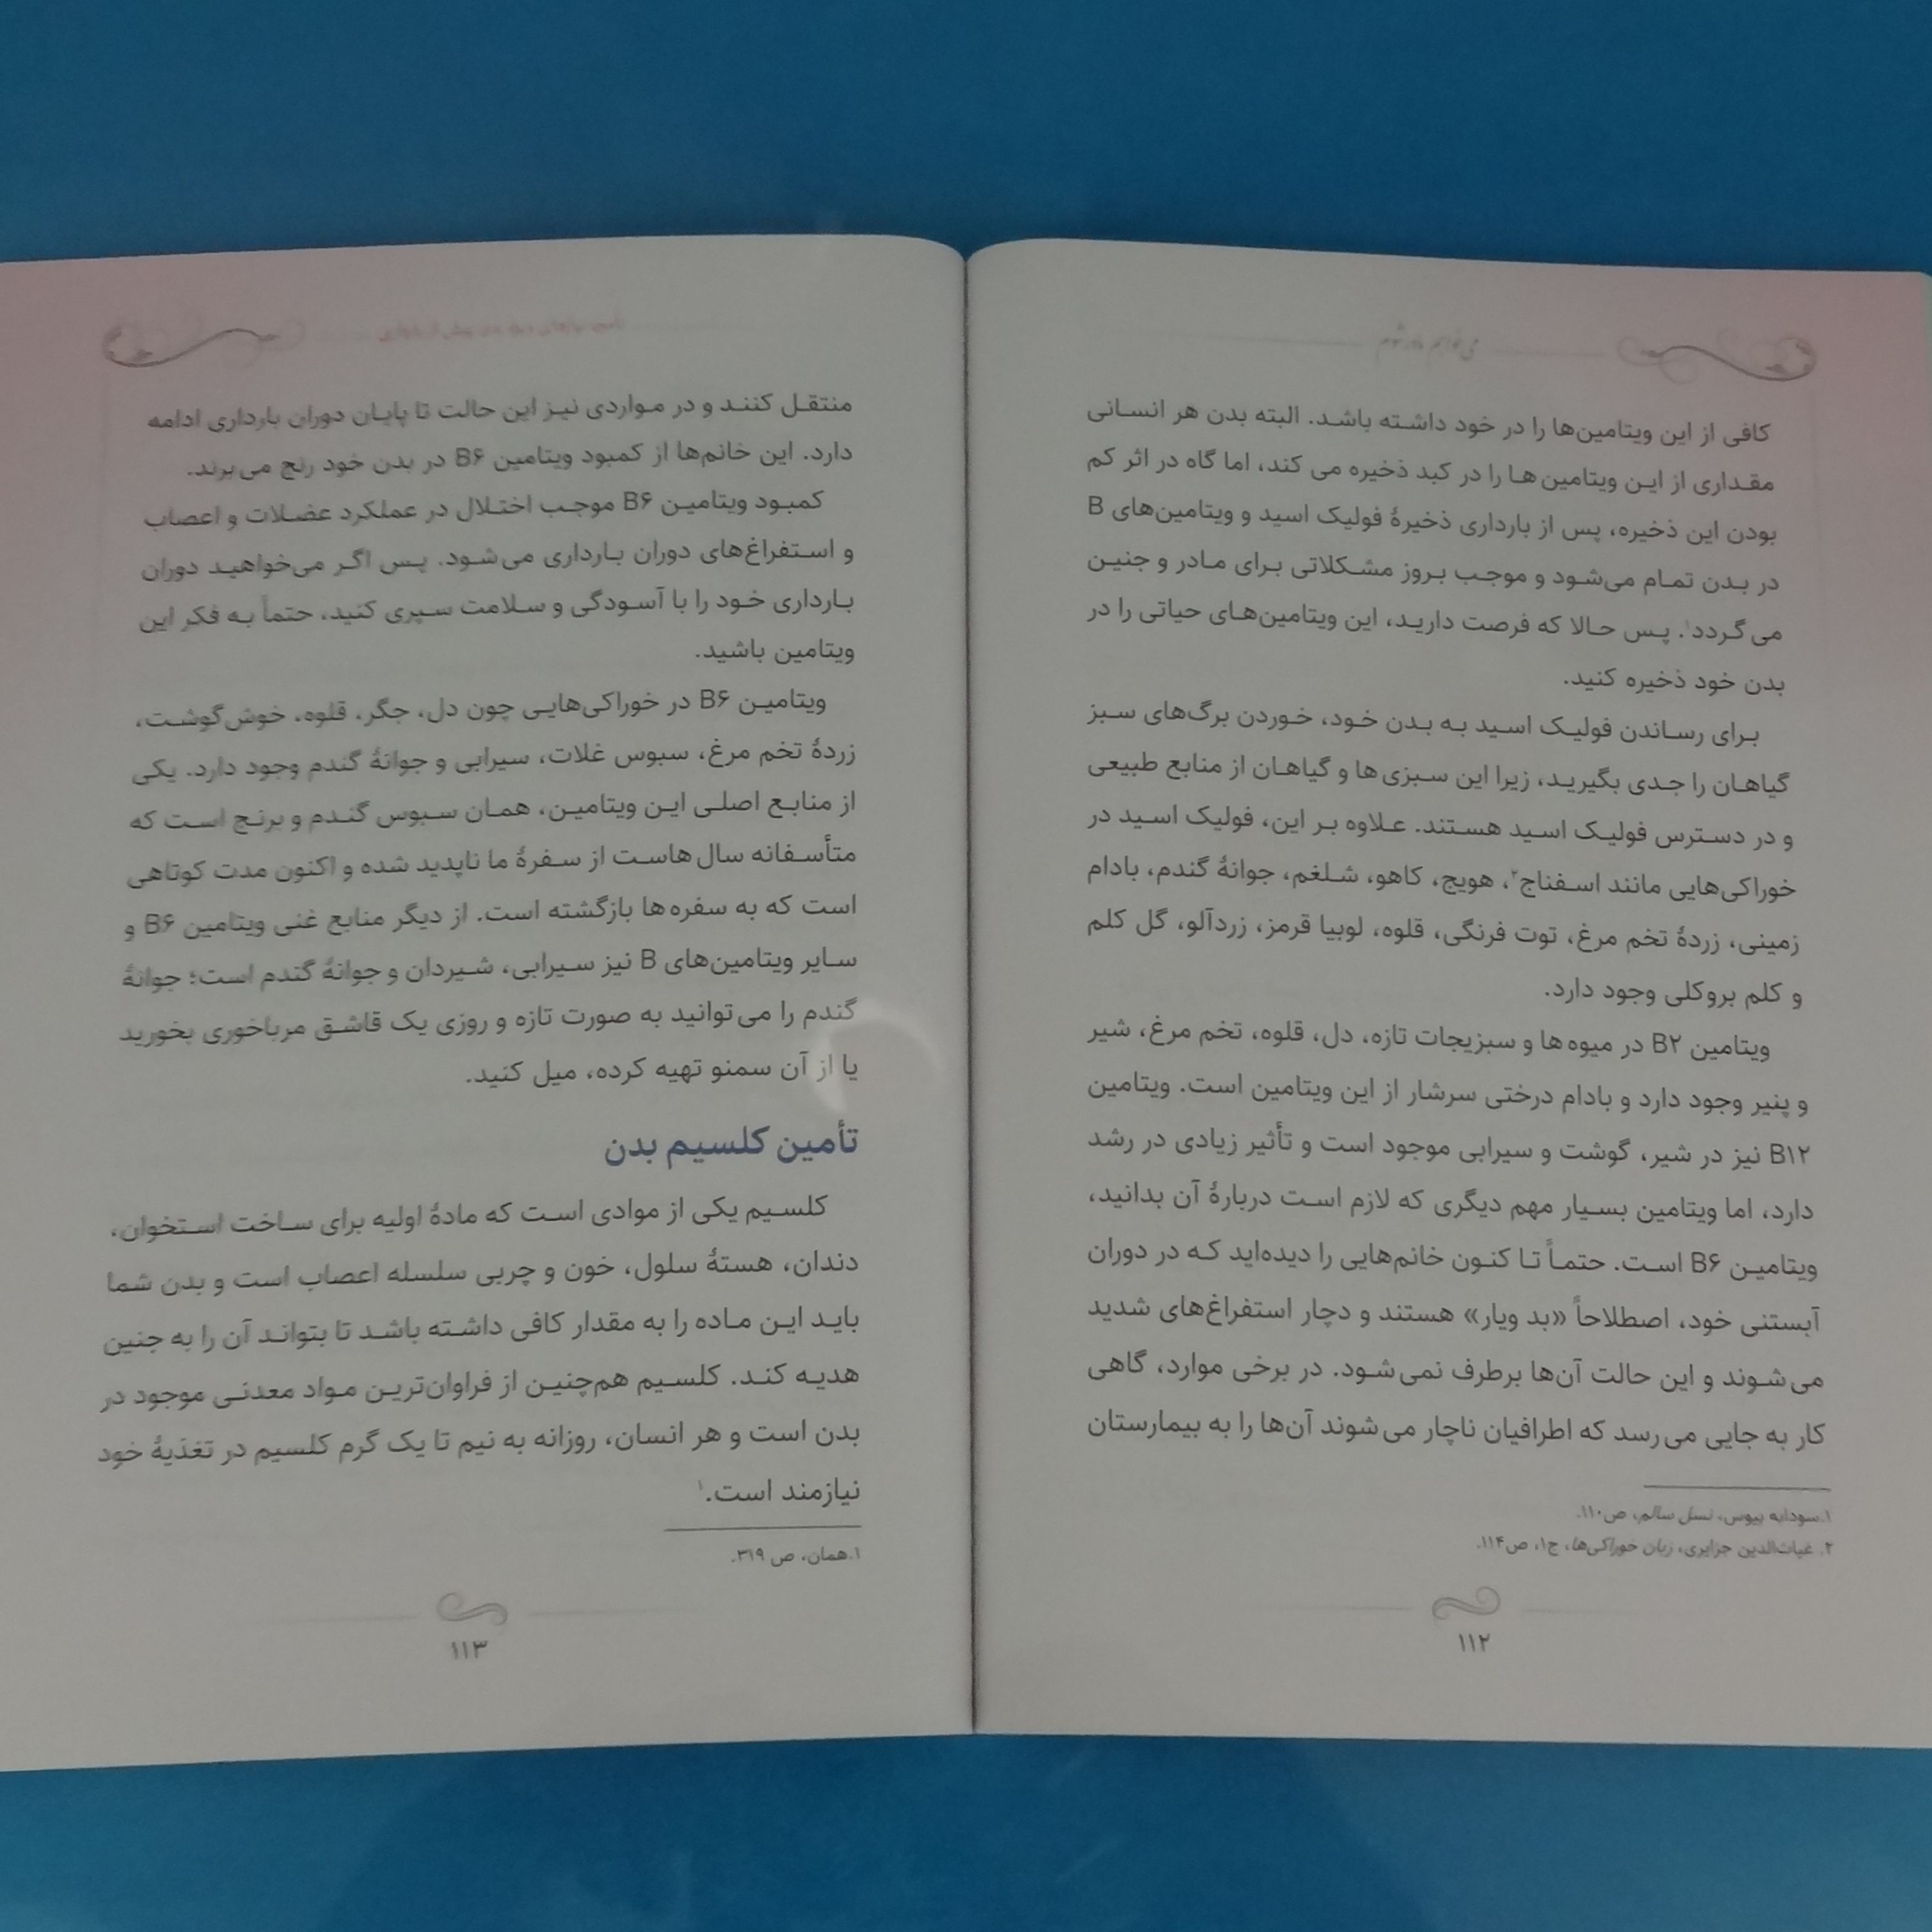 کافی از این ویتامین‌ها را در خود داشته باشد. البته بدن هر انسانی
مقداری از این ویتامین‌ها را در کبد ذخیره می کند، اما گاه در اثر کم
بودن این ذخیره، پس از بارداری ذخیرهٔ فولیک اسید و ویتامین‌های B
در بدن تمام می‌شود و موجب بروز مشکلاتی برای مادر و جنین
می گردد۱. پس حالا که فرصت دارید، این ویتامین‌های حیاتی را در
بدن خود ذخیره کنید.
برای رساندن فولیک اسید به بدن خود، خوردن برگ‌های سبز
گیاهان را جدی بگیرید، زیرا این سبزی‌ها و گیاهان از منابع طبیعی
و در دسترس فولیک اسید هستند. علاوه بر این، فولیک اسید در
خوراکی‌هایی مانند اسفناج۲، هویج، کاهو، شلغم، جوانهٔ گندم، بادام
زمینی، زردهٔ تخم مرغ، توت فرنگی، قلوه، لوبیا قرمز، زردآلو، گل کلم
و کلم بروکلی وجود دارد.
ویتامین B۲ در میوه‌ها و سبزیجات تازه، دل، قلوه، تخم مرغ، شیر
و پنیر وجود دارد و بادام درختی سرشار از این ویتامین است. ویتامین
B۱۲ نیز در شیر، گوشت و سیرابی موجود است و تأثیر زیادی در رشد
دارد، اما ویتامین بسیار مهم دیگری که لازم است دربارهٔ آن بدانید،
ویتامین B۶ است. حتماً تا کنون خانم‌هایی را دیده‌اید که در دوران
آبستنی خود، اصطلاحاً «بد ویار» هستند و دچار استفراغ‌های شدید
می‌شوند و این حالت آن‌ها برطرف نمی‌شود. در برخی موارد، گاهی
کار به جایی می‌رسد که اطرافیان ناچار می‌شوند آن‌ها را به بیمارستان
۱.سودابه بیوس، نسل سالم، ص۱۱۰.
۲. غیاث‌الدین جزایری، زبان خوراکی‌ها، ج۱، ص۱۱۴.
۱۱۲
منتقل کنند و در مواردی نیز این حالت تا پایان دوران بارداری ادامه
دارد. این خانم‌ها از کمبود ویتامین B۶ در بدن خود رنج می‌برند.
کمبود ویتامین B۶ موجب اختلال در عملکرد عضلات و اعصاب
و استفراغ‌های دوران بارداری می‌شود. پس اگر می‌خواهید دوران
بارداری خود را با آسودگی و سلامت سپری کنید، حتماً به فکر این
ویتامین باشید.
ویتامین B۶ در خوراکی‌هایی چون دل، جگر، قلوه، خوش‌گوشت،
زردهٔ تخم مرغ، سبوس غلات، سیرابی و جوانهٔ گندم وجود دارد. یکی
از منابع اصلی این ویتامین، همان سبوس گندم و برنج است که
متأسفانه سال‌هاست از سفرهٔ ما ناپدید شده و اکنون مدت کوتاهی
است که به سفره‌ها بازگشته است. از دیگر منابع غنی ویتامین B۶ و
سایر ویتامین‌های B نیز سیرابی، شیردان و جوانهٔ گندم است؛ جوانهٔ
گندم را می‌توانید به صورت تازه و روزی یک قاشق مرباخوری بخورید
یا از آن سمنو تهیه کرده، میل کنید.
تأمین کلسیم بدن
کلسیم یکی از موادی است که مادهٔ اولیه برای ساخت استخوان،
دندان، هستهٔ سلول، خون و چربی سلسله اعصاب است و بدن شما
باید این ماده را به مقدار کافی داشته باشد تا بتواند آن را به جنین
هدیه کند. کلسیم هم‌چنین از فراوان‌ترین مواد معدنی موجود در
بدن است و هر انسان، روزانه به نیم تا یک گرم کلسیم در تغذیهٔ خود
نیازمند است.۱
۱.همان، ص ۳۱۹.
۱۱۳